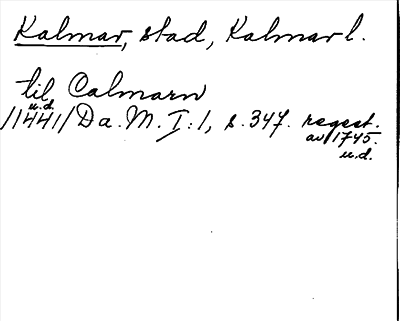 Kalmar, stad, Kalmar l.
til Calmarn
u.d.
/1441/ Da. M. I:1, s. 347. regest.
av 1745.
u.d.